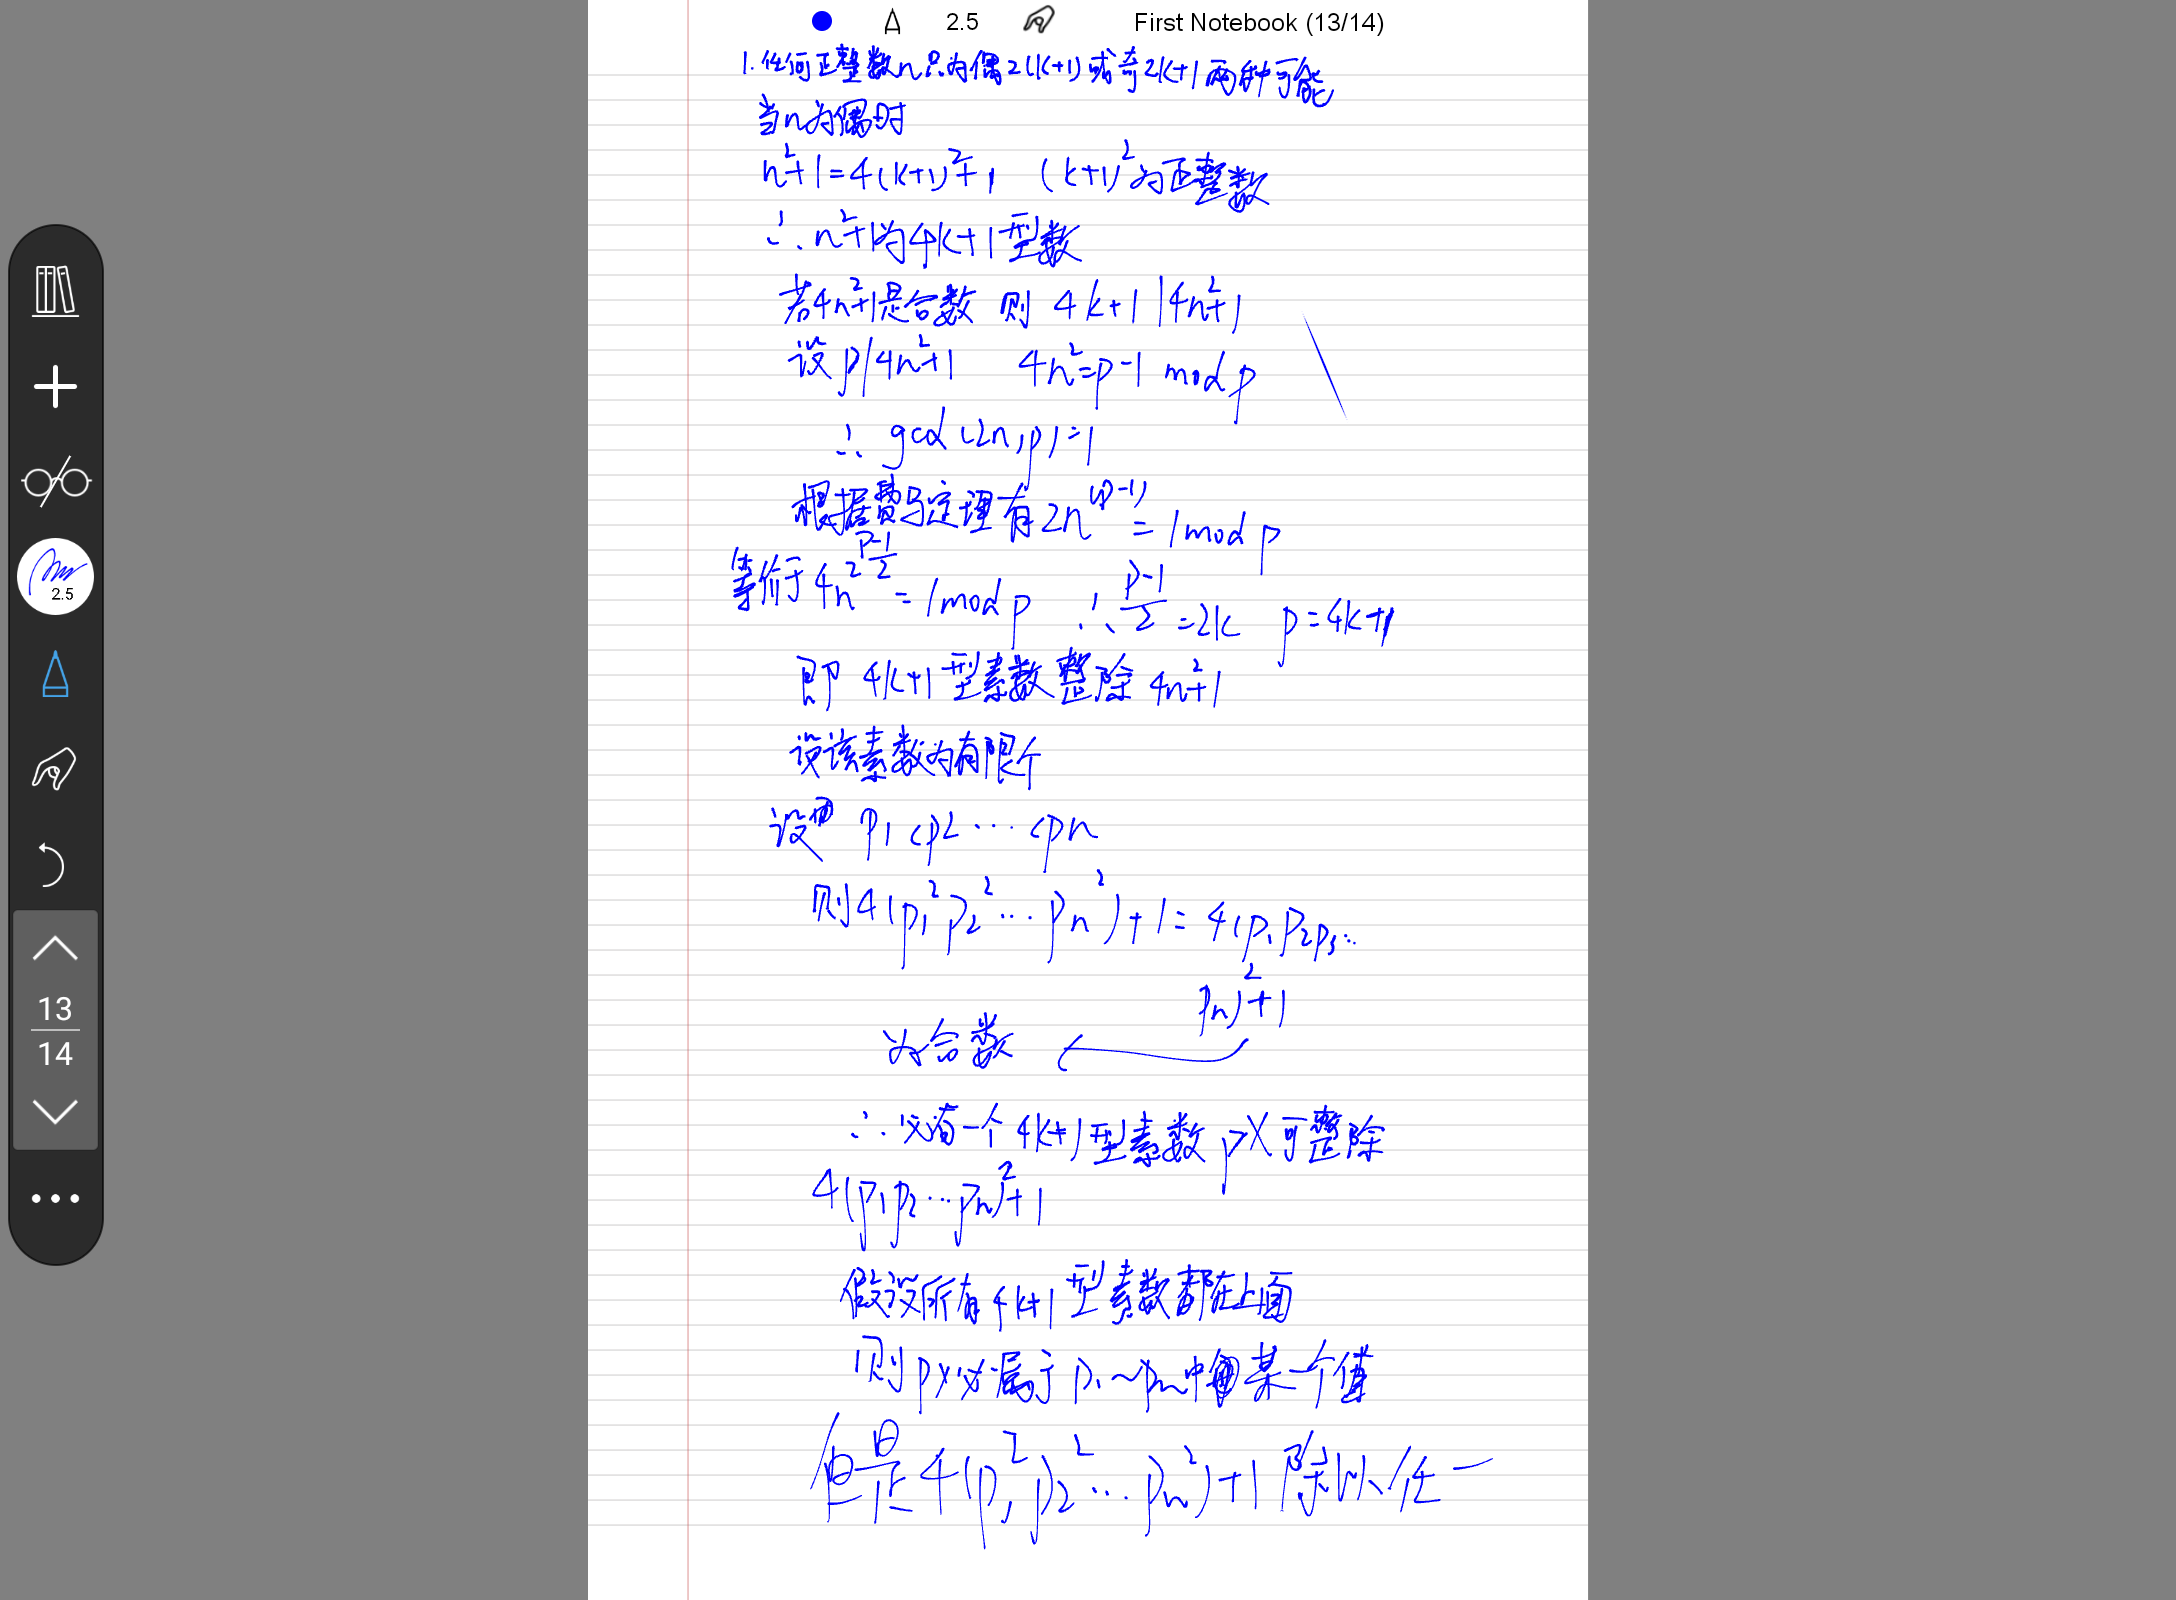 2.5
First Notebook (13/14)
1. 任何正整数n只为偶2(k+1)或奇2k+1两种可能
当n为偶时
n²+1=4(k+1)²+1 (k+1)²为正整数
∴n²+1为4k+1型数
若4n²+1是合数 则 4k+1|4n²+1
设p|4n²+1 4n²=p-1 mod p
∴ gcd(2n,p)=1
根据费马定理有2n^(p-1)=1 mod p
等价于4n^2^(p-1)/2=1 mod p ∴(p-1)/2=2k p=4k+1
即 4k+1型素数整除4n²+1
设该素数为有限个
设 p1<p2...<pn
则4(p1²p2²...pn²)+1=4(p1p2p3...
pn)²+1
为合数
∴必有一个4k+1型素数px可整除
4(p1p2...pn)²+1
假设所有4k+1型素数都在上面
则px必属于p1~pn中某一个值
但是4(p1²p2²...pn²)+1除以任一
2.5
13
14